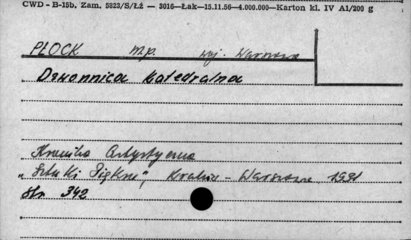 CWD - B-15b. Zam. 5823/S/Łż — 3016—Łak—15.11.56—4.000.000—Karton kl. IV A1/200 g
PŁOCK m.p. woj. Warszawa
Dzwonnica katedralna
Kronika Artystyczna
„Sztuki Piękne", Kraków - Warszawa 1931
str. 342